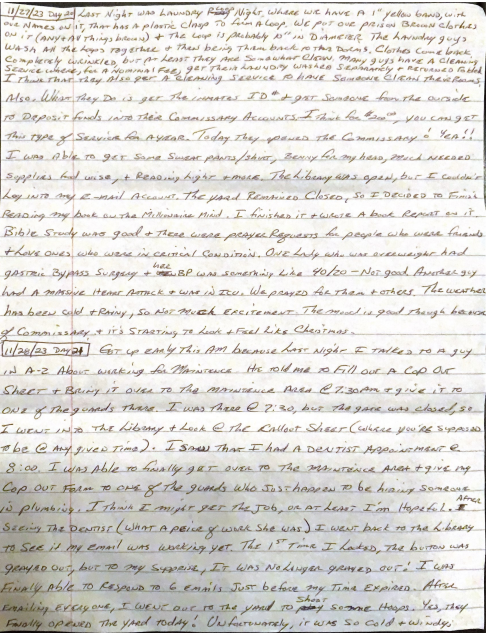 11/27/23 Day 20 Last Night was Laundry Loop Night, Where we have A 1" yellow band, with
our Names on it, That has a plastic Clasp to Form a loop. We put our prison Brown Clothes
on it (Anything brown) & the Loop is probably 10" in Diameter. The Laundry guys
Wash All the Loops together & Then bring Them back to the Dorms. Clothes Come back
Completely wrinkled, but At Least They are Somewhat Clean. Many guys have A Cleaning
Service where, for A Nominal Fee, get Their Laundry Washed Separately & Returned Folded
I Think That They Also get A Cleaning Service to have Someone Clean Their Rooms
Also. What They Do is get The inmates ID# & get Someone from The outside
to Deposit funds into Their Commissary Accounts. I Think for you can get
This type of Service for A year. Today They opened the Commissary! Yea!!
I was Able to get Some Sweat pants/shirt, Benny for my head, much Needed
Supplies food wise, & Reading Light & more. The Library was open, but I couldn't
Log into my e-mail Account. The yard Remained Closed, So I Decided to Finish
Reading my book on the Millionaire Mind. I finished it & wrote A book Report on it.
Bible Study was good & There were prayer Requests for people who were friends
& Love ones who were in critical Condition. One Lady who was overweight had
gastric Bypass Surgery & her BP was something Like 40/20 - Not good. Another guy
had A Massive Heart Attack & was in ICU. We prayed for Them & others. The weather
has been Cold & Rainy, so Not Much Excitement. The mood is good Though because
of Commissary & it's Starting to Look & Feel Like Christmas.
11/28/23 Day 21 Got up early This AM because Last Night I Talked to A guy
in A-2 About working for Maintence. He told me to Fill out A Cop Out
Sheet & Bring it over to The Maintence Area @ 7:30AM & give it to
One of The guards There. I was There @ 7:30, but The gate was closed, so
I went into The Library & Look @ The Callout Sheet (where you're Supposed
to be @ Any given Time). I Saw That I had A Dentist Appointment @
8:00. I was Able to finally get over to The Maintence Area & give my
Cop Out Form to one of The guards who Just happen to be hiring Someone
in plumbing. I Think I might get The Job, or at Least I'm Hopeful. After
Seeing The Dentist (What A peice of work She was) I went back to the Library
to See if my email was working yet. The 1st Time I Looked, The button was
grayed out, but to my Supprise, It was No Longer grayed out! I was
Finally Able to Respond to 6 emails Just before my Time Expired. After
Emailing Everyone, I went out to the yard to Shoot Some Hoops. Yes, They
Finally opened The yard Today! Unfortunately, it was So Cold & Windy,